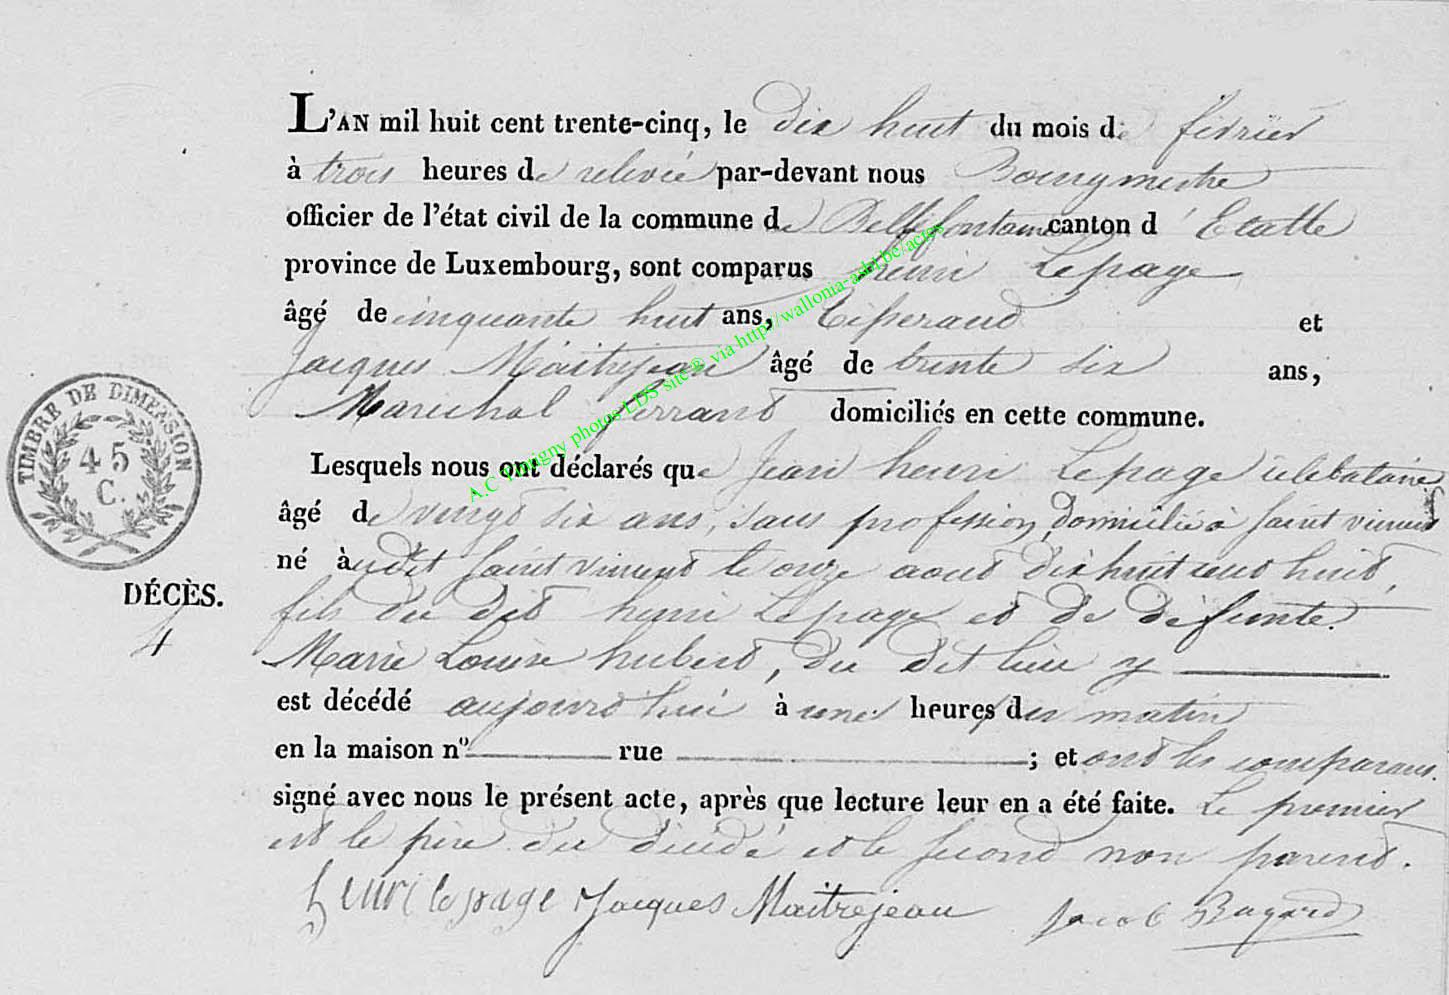 L'AN mil huit cent trente-cinq, le dix huit du mois de février
à trois heures de relevée par-devant nous Bourgmestre
officier de l'état civil de la commune de Bellefontaine canton d'Etalle
province de Luxembourg, sont comparus henri Lepage
âgé de cinquante huit ans, Tisserand et
Jacques Maitrejean âgé de trente six ans,
Maréchal ferrand domiciliés en cette commune.
Lesquels nous ont déclarés que Jean henri Lepage célebataire
âgé de vingt six ans, sans profession, domicilié à Saint vincent
né audit Saint vincent le onze aout dix huit cent huit,
fils du dit henri Lepage et de défunte
Marie Louise hubert, du dit lieu
est décédé aujourd'hui à une heures du matin
en la maison nº rue ; et ont les comparans
signé avec nous le présent acte, après que lecture leur en a été faite. Le premier
est le père du décédé et le second non parent.
henri lepage Jacques Maitrejean Jacob
TIMBRE DE DIMENSION
45
C.
DÉCÈS.
4
A.C Tintigny photos LDS site® via http://wallonia-asbl.be/actes